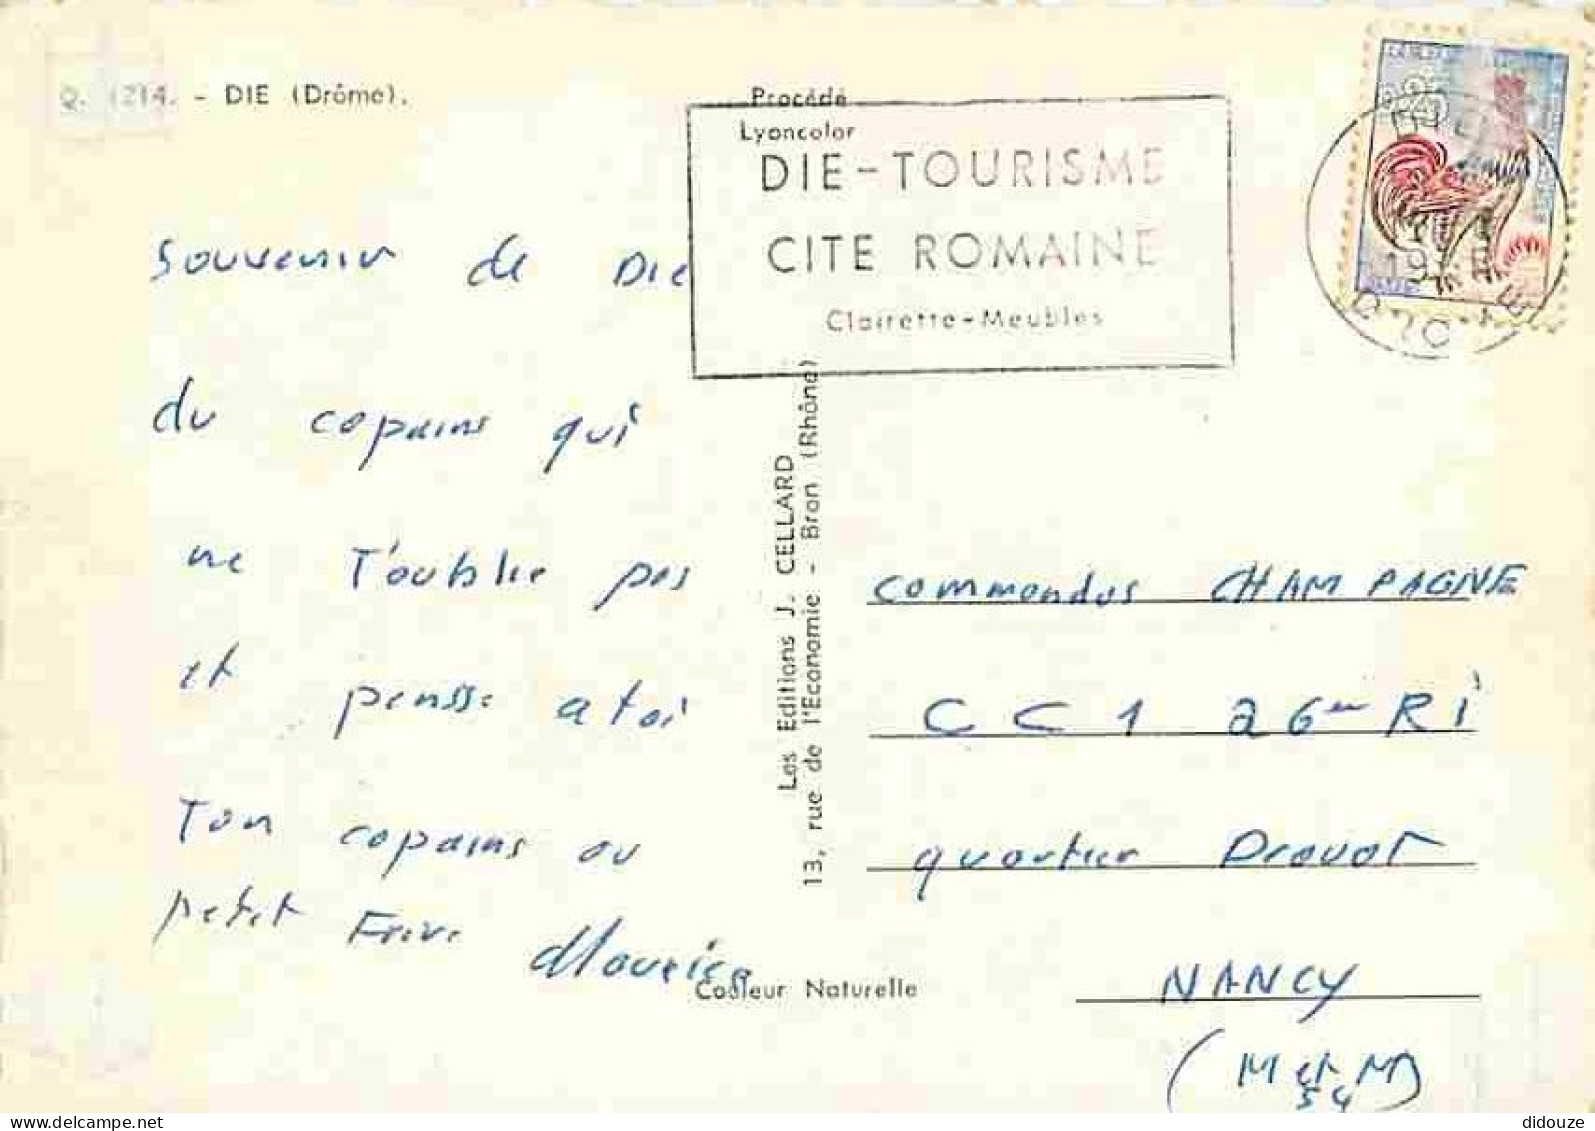 Q. 1214. - DIE (Drôme).
Procédé
Lyoncolor
DIE-TOURISME
CITE ROMAINE
Clairette-Meubles
Souvenir de DIE
du copains qui
ne T'oublie pas
et pensse a toi
Ton copains ou
petit Frere Maurice
Les Editions J. CELLARD
13, rue de l'Economie - Bron (Rhône)
Couleur Naturelle
commandos CHAMPAGNE
CC1 26em RI
quartier Drouot
NANCY
(M et M)
54
delcampe.net
didouze